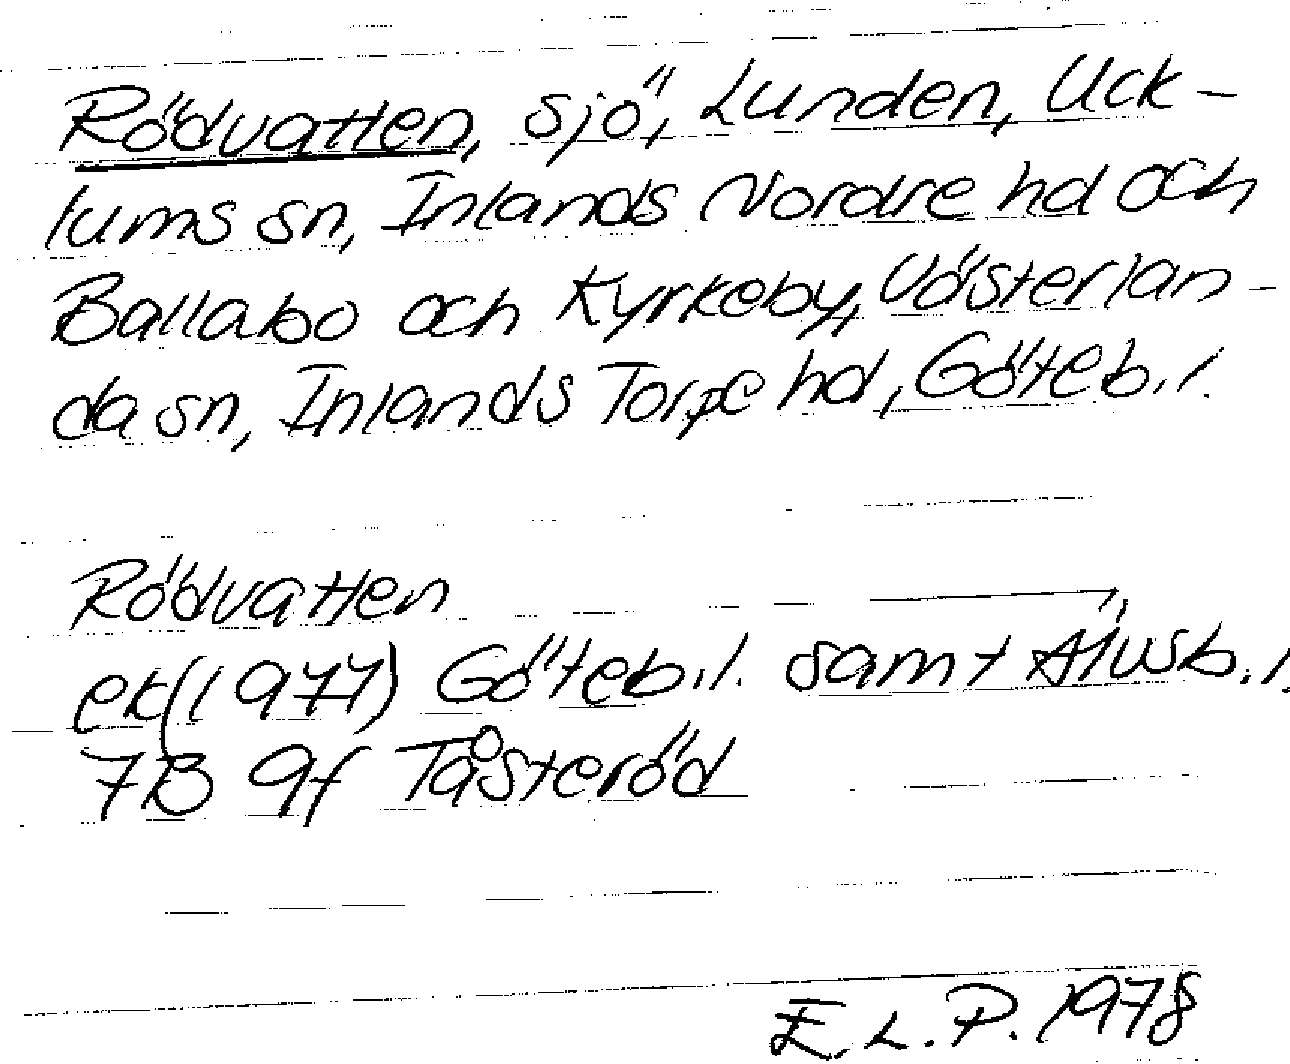 Rödvatten, sjö, Lunden, Uck-
lums sn, Inlands Nordre hd och
Ballabo och Kyrkeby, Västerlan-
da sn, Inlands Torpe hd, Göteb. l.
Rödvatten
ek (1977) Göteb. l. samt Älvsb. l.
7B 9f Tåsteröd
E. L. P. 1978